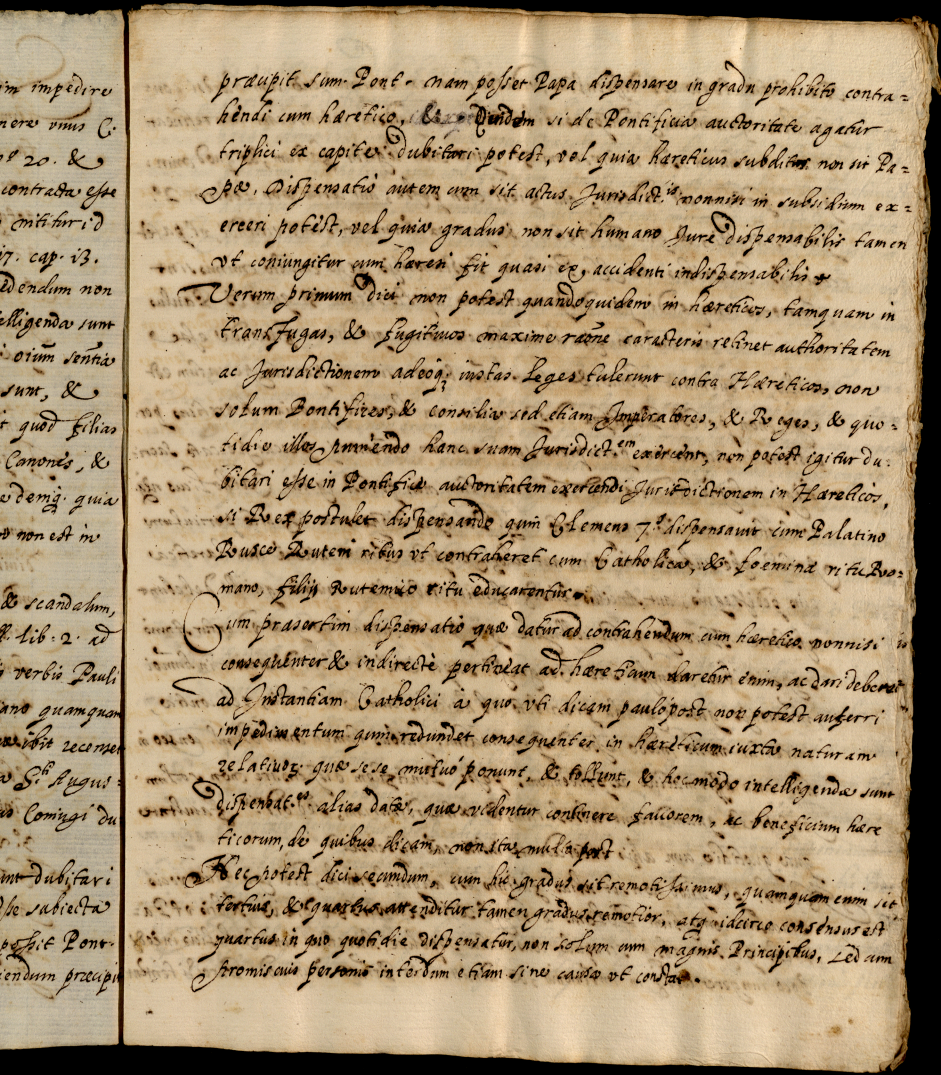 im impedire
nere vnius C.
20. &
contracta esse
nititur id
17. cap. 13.
edendum non
elligenda sunt
oium sentia
sunt, &
quod filias
Canones, &
demq. quia
non est in
& scandalum,
lib. 2. ad
verbis Pauli
quamquam
ibit recenset
S.ti Augus-
Coniugi du
dubitari
sse subiecta
possit Pont.
endum præcipu
præcipit sum. Pont. nam posset Papa dispensare in gradu prohibito contra=
hendi cum hæretico, & si de Pontificia auctoritate agatur
triplici ex capite dubitari potest, vel quia hæreticus subditus non sit Pa=
pæ, Dispensatio autem cum sit actus Jurisdict.is nonnisi in subditum ex=
erceri potest, vel quia gradus non sit humano Jure dispensabilis tamen
vt coniungitur cum hæresi fit quasi ex accidenti indispensabilis
Verum primum dici non potest quandoquidem in hæreticos, tamquam in
transfugas, & fugitiuos maxime rãone caracteris retinet authoritatem
ac Jurisdictionem adeoq; iustas leges tulerunt contra Hæreticos, non
solum Pontifices, & consilia sed etiam Imperatores, & Reges, & quo-
tidie illos puniendo hanc suam Jurisdict.em exercent, non potest igitur du-
bitari esse in Pontifice auctoritatem exercendi Jurisdictionem in Hæreticos,
si Res postulet dispensando quin Clemens 7.s dispensauit cum Palatino
Rusce Ruteni ritus vt contraheret cum Catholica, & foeminæ ritu Ro-
mano, filij Rutenico ritu educarentur.
Cum præsertim dispensatio quæ datur ad contrahendum cum hæretico nonnisi
consequenter & indirectè pertineat ad hæreticum daretur enim, ac dari deberet
ad Instantiam Catholici à quo vti dicam paulò post non potest auferri
impedimentum quin redundet consequenter in hæreticum iuxta naturam
relatiuor; quæ se se mutuò ponunt, & tollunt, & hoc modo intelligendæ sunt
dispensat.es alias datæ, quæ videntur continere fauorem, ac beneficium hære
ticorum, de quibus dicam, non ita multa post
Nec potest dici secundum, cum hic gradus sit remotissimus, quamquam enim sit
tertius, & quartus attenditur tamen gradus remotior, atq idcirco consensus est
quartus in quo quotidie dispensatur, non solum cum magnis Principibus, sed cum
promiscuis personis interdum etiam sine causa vt constat.